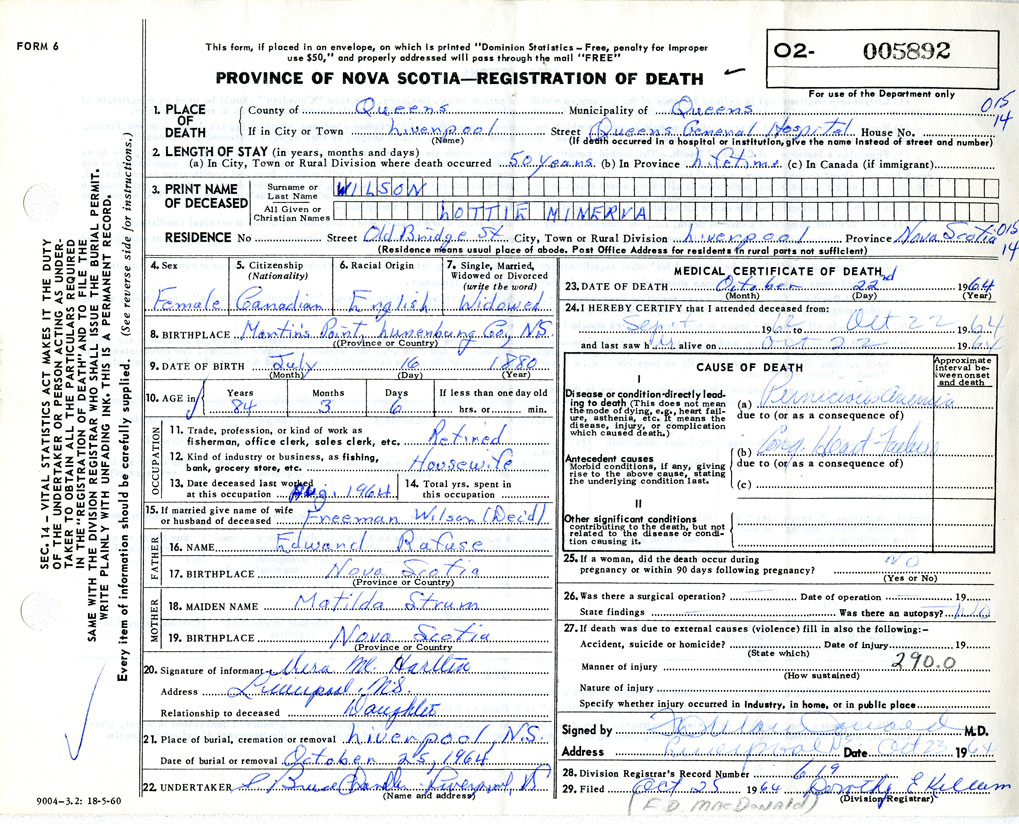 FORM 6
This form, if placed in an envelope, on which is printed "Dominion Statistics – Free, penalty for improper
use $50," and properly addressed will pass through the mail "FREE"
PROVINCE OF NOVA SCOTIA—REGISTRATION OF DEATH
02- 005892
For use of the Department only
015
14
1. PLACE OF DEATH
County of Queens Municipality of Queens
If in City or Town Liverpool Street Queens General Hospital House No.
(Name) (If death occurred in a hospital or institution, give the name instead of street and number)
2. LENGTH OF STAY (in years, months and days)
(a) In City, Town or Rural Division where death occurred 50 years (b) In Province Lifetime (c) In Canada (if immigrant)
3. PRINT NAME OF DECEASED
Surname or Last Name WILSON
All Given or Christian Names LOTTIE MINERVA
RESIDENCE No Street Old Bridge St City, Town or Rural Division Liverpool Province Nova Scotia 015
14
(Residence means usual place of abode. Post Office Address for residents in rural parts not sufficient)
4. Sex
Female
5. Citizenship (Nationality)
Canadian
6. Racial Origin
English
7. Single, Married, Widowed or Divorced (write the word)
Widowed
8. BIRTHPLACE Martin's Point, Lunenburg Co., N.S.
(Province or Country)
9. DATE OF BIRTH July 16 1880
(Month) (Day) (Year)
10. AGE in Years Months Days If less than one day old
84 3 6 hrs. or min.
OCCUPATION
11. Trade, profession, or kind of work as
fisherman, office clerk, sales clerk, etc. Retired
12. Kind of industry or business, as fishing,
bank, grocery store, etc. Housewife
13. Date deceased last worked
at this occupation Aug. 1964
14. Total yrs. spent in
this occupation
15. If married give name of wife
or husband of deceased Freeman Wilson (Dec'd)
FATHER
16. NAME Edward Rafuse
17. BIRTHPLACE Nova Scotia
(Province or Country)
MOTHER
18. MAIDEN NAME Matilda Strum
19. BIRTHPLACE Nova Scotia
(Province or Country)
20. Signature of informant M.
Address Liverpool, N.S.
Relationship to deceased Daughter
21. Place of burial, cremation or removal Liverpool, N.S.
Date of burial or removal October 25, 1964
22. UNDERTAKER Bruce Chandler Liverpool, NS
(Name and address)
9004-3.2: 18-5-60
MEDICAL CERTIFICATE OF DEATH
23. DATE OF DEATH October 22nd 1964
(Month) (Day) (Year)
24. I HEREBY CERTIFY that I attended deceased from:
Sept 1962 to Oct 22 1964
and last saw h alive on Oct 22 1964
CAUSE OF DEATH
Approximate interval between onset and death
I
Disease or condition directly leading to death (This does not mean
the mode of dying, e.g., heart failure, asthenia, etc. It means the
disease, injury, or complication
which caused death.)
(a) Pernicious Anemia
due to (or as a consequence of)
Antecedent causes
Morbid conditions, if any, giving
rise to the above cause, stating
the underlying condition last.
(b) Cong. Heart Failure
due to (or as a consequence of)
(c)
II
Other significant conditions
contributing to the death, but not
related to the disease or condition causing it.
25. If a woman, did the death occur during
pregnancy or within 90 days following pregnancy? NO
(Yes or No)
26. Was there a surgical operation? – Date of operation – 19
State findings – Was there an autopsy? NO
27. If death was due to external causes (violence) fill in also the following:–
Accident, suicide or homicide? Date of injury 19
(State which)
Manner of injury 290.0
(How sustained)
Nature of injury
Specify whether injury occurred in industry, in home, or in public place
Signed by M.D.
Address Liverpool NS Date Oct 23 1964
28. Division Registrar's Record Number 619
29. Filed Oct 25 1964 Dorothy E Killam
(F.D. MacDonald) (Division Registrar)
SEC. 14 – VITAL STATISTICS ACT MAKES IT THE DUTY
OF THE UNDERTAKER OR PERSON ACTING AS UNDER-
TAKER TO OBTAIN ALL THE PARTICULARS REQUIRED
IN THE "REGISTRATION OF DEATH" AND TO FILE THE
SAME WITH THE DIVISION REGISTRAR WHO SHALL ISSUE THE BURIAL PERMIT.
WRITE PLAINLY WITH UNFADING INK. THIS IS A PERMANENT RECORD.
Every item of information should be carefully supplied. (See reverse side for instructions.)